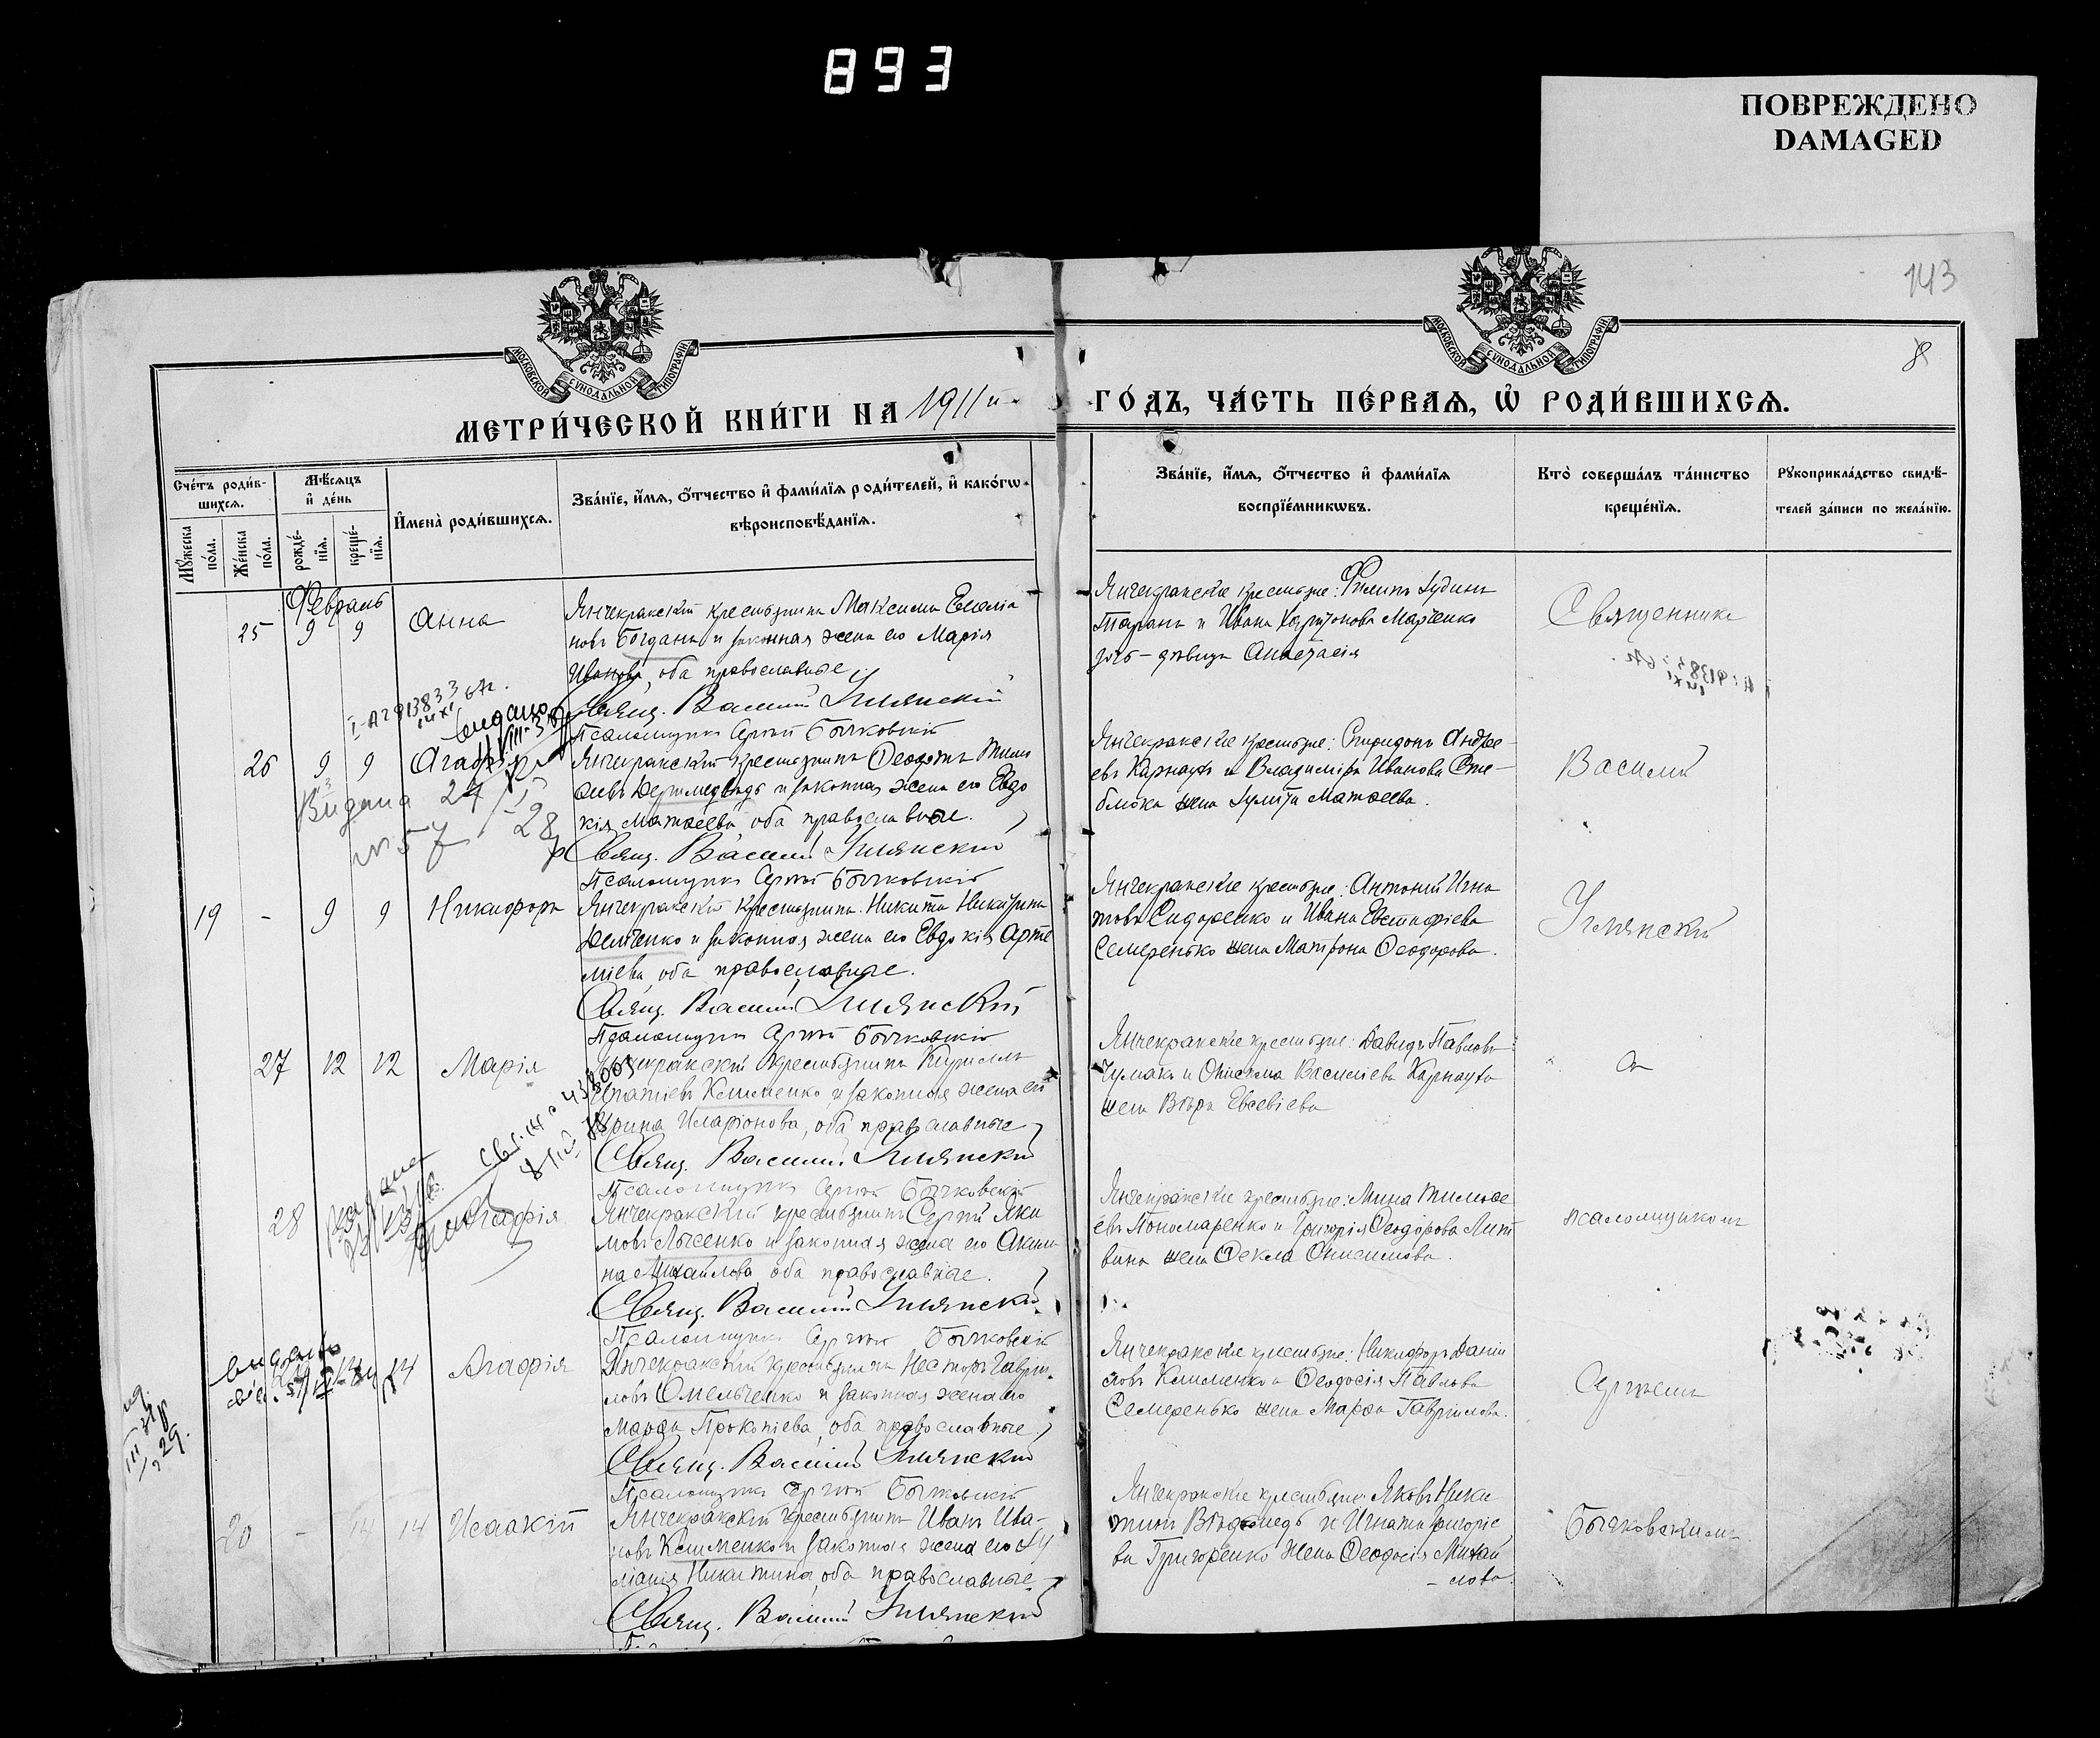 893
ПОВРЕЖДЕНО
DAMAGED
143
8
МОСКОВСКОЙ СѴНОДАЛЬНОЙ ТИПОГРАФІИ
МОСКОВСКОЙ СѴНОДАЛЬНОЙ ТИПОГРАФІИ
МЕТРИ́ЧЕСКОЙ КНИ́ГИ НА 1911й
ГО́ДЪ, ЧА́СТЬ ПЕ́РВАѦ, Ѡ҆ РОДИ́ВШИХСѦ.
Сче́тъ роди́в-
шихсѧ.
Мѣ́сѧцъ
и҆ де́нь
И҆мена̀ роди́вшихсѧ.
Зва́нїе, и҆́мѧ, ѻ҆́тчество и҆ фами́лїѧ роди́телей, и҆ како́гѡ
вѣроисповѣ́данїѧ.
Мꙋ́жеска
по́ла.
Же́нска
по́ла.
рожде́-
нїѧ.
креще́-
нїѧ.
Зва́нїе, и҆́мѧ, ѻ҆́тчество и҆ фами́лїѧ
воспрїе́мникѡвъ.
Кто̀ соверша́лъ та́инство
креще́нїѧ.
Рꙋкоприкла́дство свидѣ́-
телей за́писи по жела́нїю.
Февраль
25 9 9 Анна
Янчекракскій крестьянинъ Максимъ
новъ Богданъ и законная жена его Марія
Иванова, оба православные
Свящ. Василій Улянскій
Псаломщикъ Сергій Бычковскій
Янчекракскіе крестьяне: Филипъ Іудинъ
Таранъ и Ивана Харитонова Марченко
дочь - дѣвица Анастасія
Священникъ
видано
26 9 9 Агафія
Видана 24/I 28
№57
Янчекракскій крестьянинъ Ѳеодотъ Тимо
ѳеевъ и законная жена его Евдо
кія Матѳеева, оба православные.
Свящ. Василій Улянскій
Псаломщикъ Сергій Бычковскій
Янчекракскіе крестьяне: Спиридонъ Андре-
евъ Карнаухъ и Владиміра Иванова Сте-
блюка жена Іулита Матѳеева.
Василій
19 - 9 9 Никифоръ
Янчекракскій крестьянинъ Никита
Демченко и законная жена его Евдокія Арте
міева, оба православные.
Свящ. Василій Улянскій
Псаломщикъ Сергій Бычковскій
Янчекракскіе крестьяне: Антоній Игна
товъ Сидоренко и Ивана Евстафіева
Семеренько жена Матрона Ѳеодорова.
Улянскій
27 12 12 Марія
Янчекракскій крестьянинъ Кириллъ
Игнатіевъ Клименко и законная жена его
Ирина Иларіонова, оба православные
Свящ. Василій Улянскій
Псаломщикъ Сергій Бычковскій
Янчекракскіе крестьяне: Давидъ Павловъ
Чумакъ и Онисима Василіева Карнауха
жена Вѣра Евсевіева
съ
28 Агафія
Янчекракскій крестьянинъ Сергій Яки
мовъ Лысенко и законная жена его Акили
на Михайлова, оба православные.
Свящ. Василій Улянскій
Псаломщикъ Сергій Бычковскій
Янчекракскіе крестьяне: Мина Тимоѳе
евъ Пономаренко и Григорія Ѳеодорова Лит
вина жена Ѳекла Онисимова.
псаломщикомъ
видано
14 Агафія
Янчекракскій крестьянинъ Несторъ Гаврі-
ловъ Омельченко и законная жена его
Марѳа Прокопіева, оба православные
Свящ. Василій Улянскій
Псаломщикъ Сергій Бычковскій
Янчекракскіе крестьяне: Никифоръ Даніи
ловъ Клименко и Ѳеодосія Павлова
Семеренько жена Марѳа Гавріилова.
Сергіемъ
20 - 14 14 Исаакій
Янчекракскій крестьянинъ Иванъ Ива-
новъ Клименко и законная жена его Іу
ліанія Никитина, оба православные
Свящ. Василій Улянскій
Янчекракскіе крестьяне: Яковъ Ники
тинъ и Игнатія Григоріе
ва Григоренко жена Ѳеодосія Михай
- лова.
Бычковскимъ